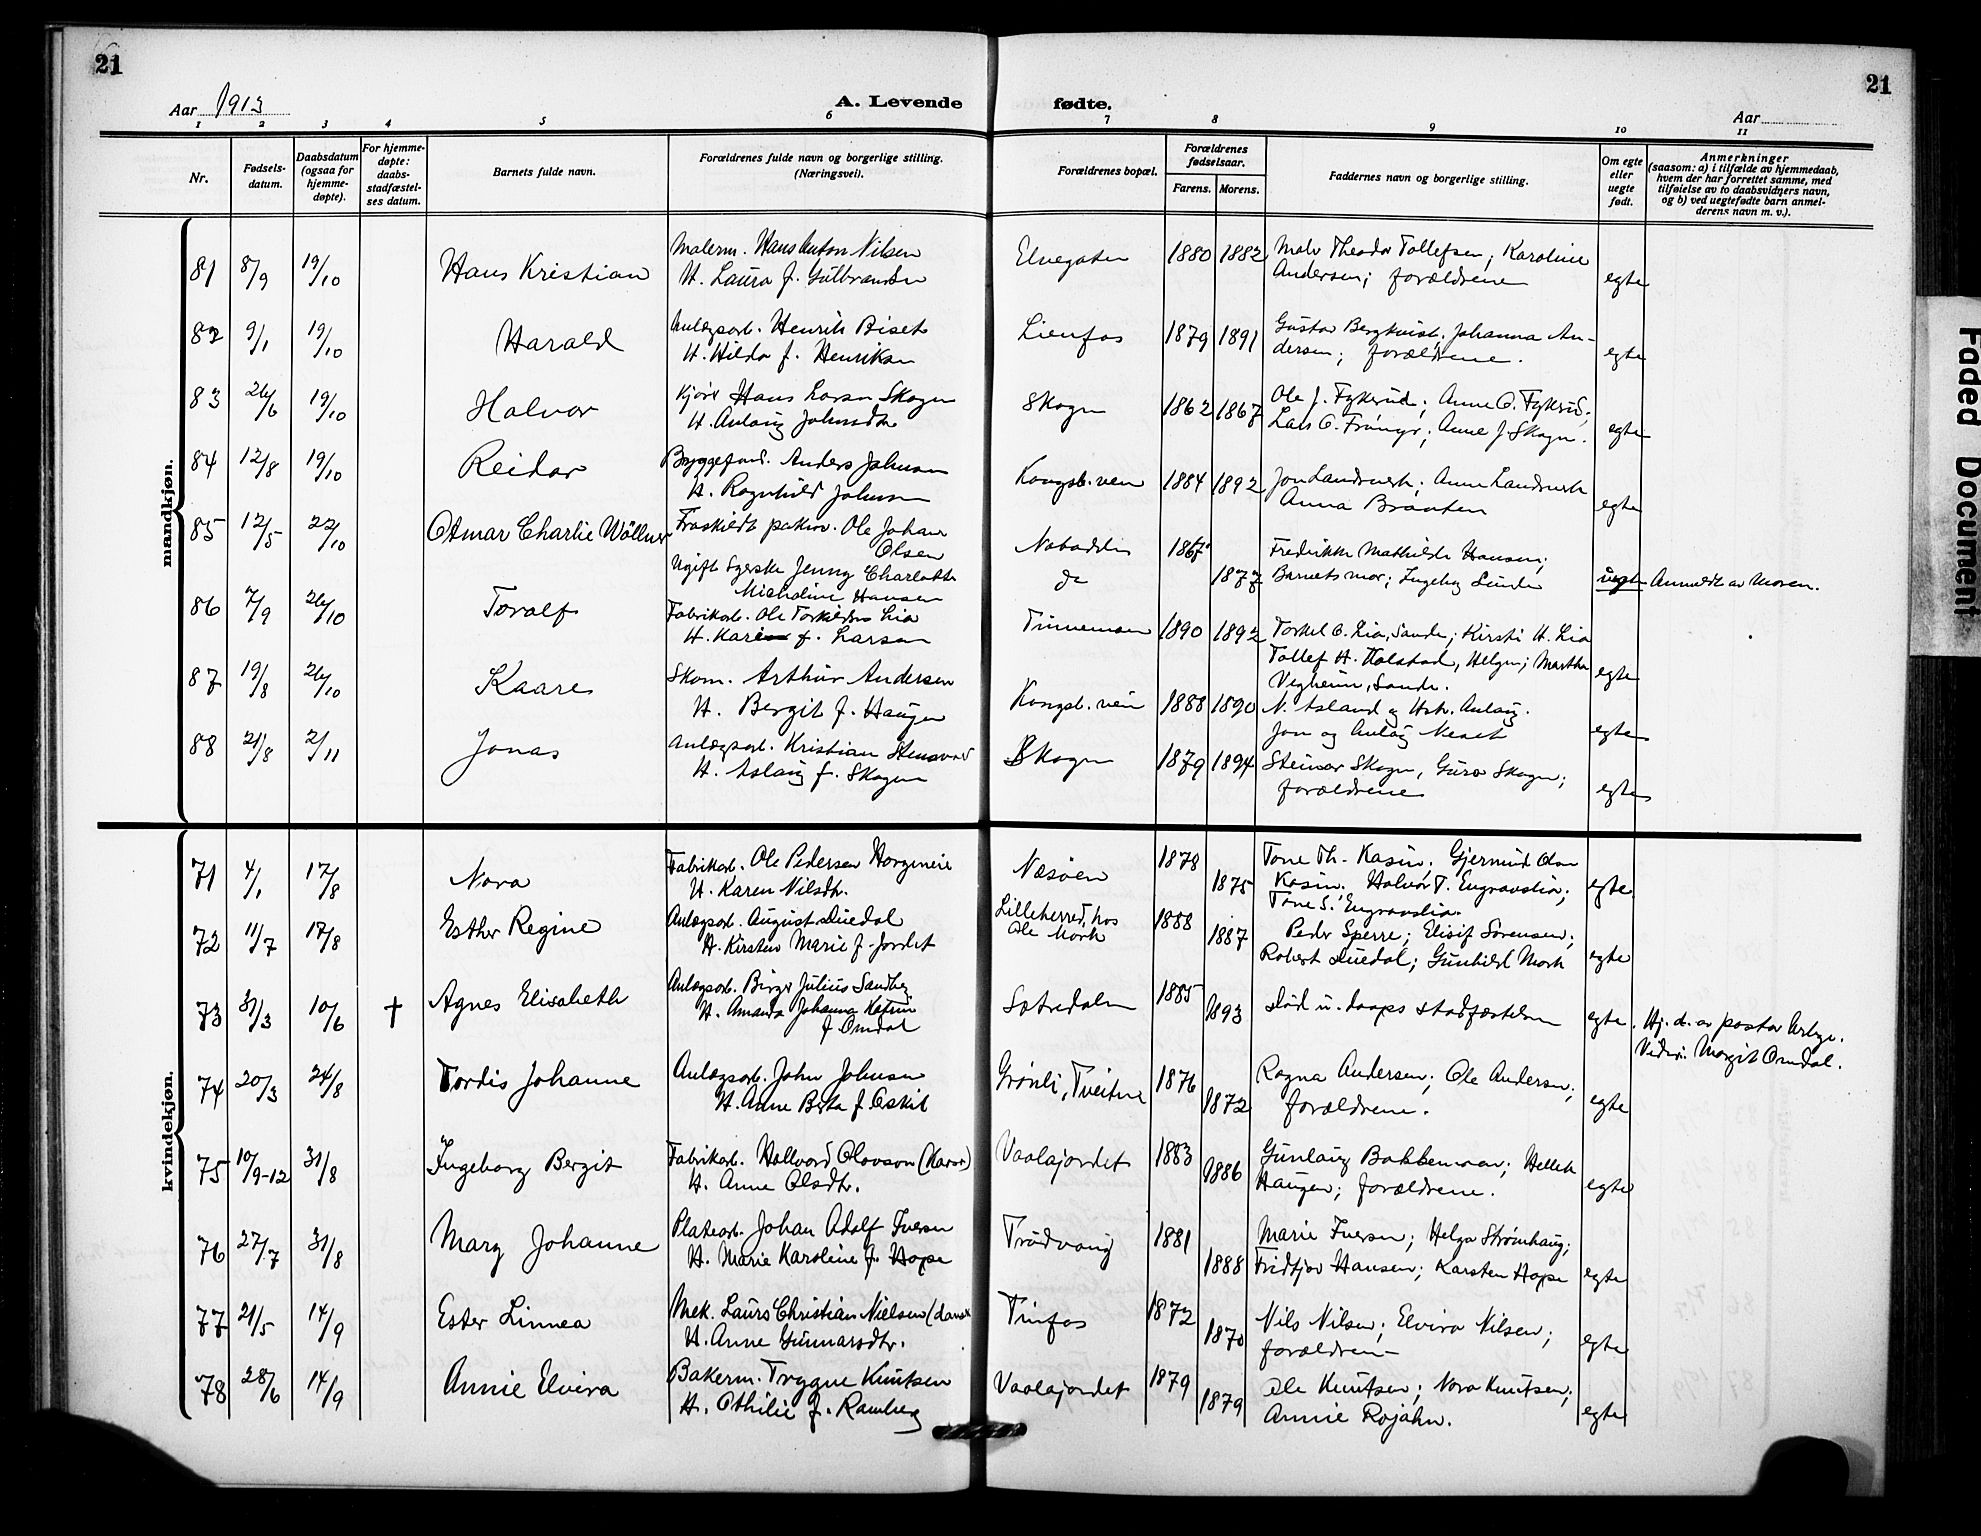 21
21
Aar 1913
A. Levende
fødte.
Aar
1 2 3 4 5 6 7 8 9 10 11
Nr.
Fødsels-
datum.
Daabsdatum
(ogsaa for
hjemme-
døpte).
For hjemme-
døpte:
daabs-
stadfæstel-
ses datum.
Barnets fulde navn.
Forældrenes fulde navn og borgerlige stilling.
(Næringsvei).
Forældrenes bopæl.
Forældrenes
fødselsaar.
Farens. Morens.
Faddernes navn og borgerlige stilling.
Om egte
eller
uegte
født.
Anmerkninger
(saasom: a) i tilfælde av hjemmedaab,
hvem der har forrettet samme, med
tilføielse av to daabsvidners navn,
og b) ved uegtefødte barn anmel-
derens navn m. v.).
mandkjøn.
81 8/9 19/10 Hans Kristian
Malerm. Hans Anton Nilsen
H. Laura f. Gulbransen
Elvegaten 1880 1882
Maler Theodor Tollefsen; Karoline
Andersen; forældrene
egte
82 9/1 19/10 Harald
Anlægsarb. Henrik Biset
H. Hilda f. Henriksen
Lienfos 1879 1891
Gustav Bergkvist; Johanna An-
dersen; forældrene.
egte
83 26/6 19/10 Halvor
Kjører Hans Larsen Skogen
H. Anlaug Johnsdtr
Skogen 1862 1867
Ole J. Fykerud; Anne O. Fykerud;
Lars O. ; Anne J. Skogen.
egte
84 12/8 19/10 Reidar
Byggefand. Anders Johnsen
H. Ragnhild Johnsen
Kongsb. veien 1884 1892
Jon Landsverk; Anne Landsverk
Anna Braaten
egte
85 12/5 22/10 Otmar Charlie Wöllner
Fraskildt Ole Johan
Olsen
Ugift Syerske Jenny Charlotte
Micheline Hansen
1867
do 1877
Fredrikke Mathilde Hansen;
Barnets mor; Ingeborg Lunde
uegte Anmeldt av Moren.
86 7/9 26/10 Toralf
Fabrikarb. Ole Torkildsen Lia
H. Karen f. Larsen
Tinnemoen 1890 1892
Torkel O. Lia, Sande; Kirsti H. Lia
Tollef H. Kolstad, Helgen; Martha
Vegheim, Sande.
egte
87 19/8 26/10 Kaare
Skom. Arthur Andersen
H. Bergit f. Haugen
Kongsb. veien 1888 1890
N. Asland og Hstr. Anlaug.
Jon og Anlaug
egte
88 21/8 2/11 Jonas
Anlægsarb. Kristian
H. Aslaug f. Skogen
Skogen 1879 1894
Steinar Skogen, Guro Skogen;
forældrene
egte
kvindekjøn.
71 4/1 17/8 Nora
Fabrikarb. Ole Pedersen
H. Karen Nilsdtr.
Næsøen 1878 1875
Tone Th. Kasin. Gjermund Olsen
Kasin. Halvor T. Engravslia;
Tone S. Engravslia.
egte
72 11/7 17/8 Esther Regine
Anlægsarb. August Duedal
H. Kirsten Marie f. Jordet
Lilleherred, hos
Ole Mork
1888 1887
Peder Sperre; Elisif Sørensen;
Robert Duedal; Gunhild Mork
egte
73 31/3 10/6 † Agnes Elisabeth
Anlægsarb. Birger Julius Sandberg
H. Amanda Johanna Katrin
f. Omdal
Sætredalen 1885 1893
Død u. daaps stadfæstelsen
egte. Hj. d. av pastor
Margit Omdal.
74 20/3 24/8 Tordis Johanne
Anlægsarb. John Johnsen
H. Anne Berta f. Eskil
Grønli, Tveiten 1876 1872
Ragna Andersen; Ole Andersen;
forældrene.
egte
75 10/9-12 31/8 Ingeborg Bergit
Fabrikarb. Hallvard Olavson
H. Anne Olsdtr.
Vaalajordet 1883 1886
Gunlaug Bakkemoen; Hellek
Haugen; forældrene.
egte
76 27/7 31/8 Mary Johanne
Platearb. Johan Adolf Iversen
H. Marie Karoline f. Hope
Traadvang 1881 1888
Marie Iversen; Helga Strømhaug;
Fridtjov Hansen; Karsten Hope
egte
77 21/5 14/9 Ester Linnea
Mek. Laurs Christian Nielsen (dansk
H. Anne Gunnarsdtr.
Tinfos 1872 1870
Nils Nilsen; Elvira Nilsen;
forældrene
egte
78 28/6 14/9 Annie Elvira
Bakerm. Trygve Knutsen
H. Othilie f. Ramberg
Vaalajordet 1879 1879
Ole Knutsen; Nora Knutsen;
Annie Rojahn.
egte
Faded Document